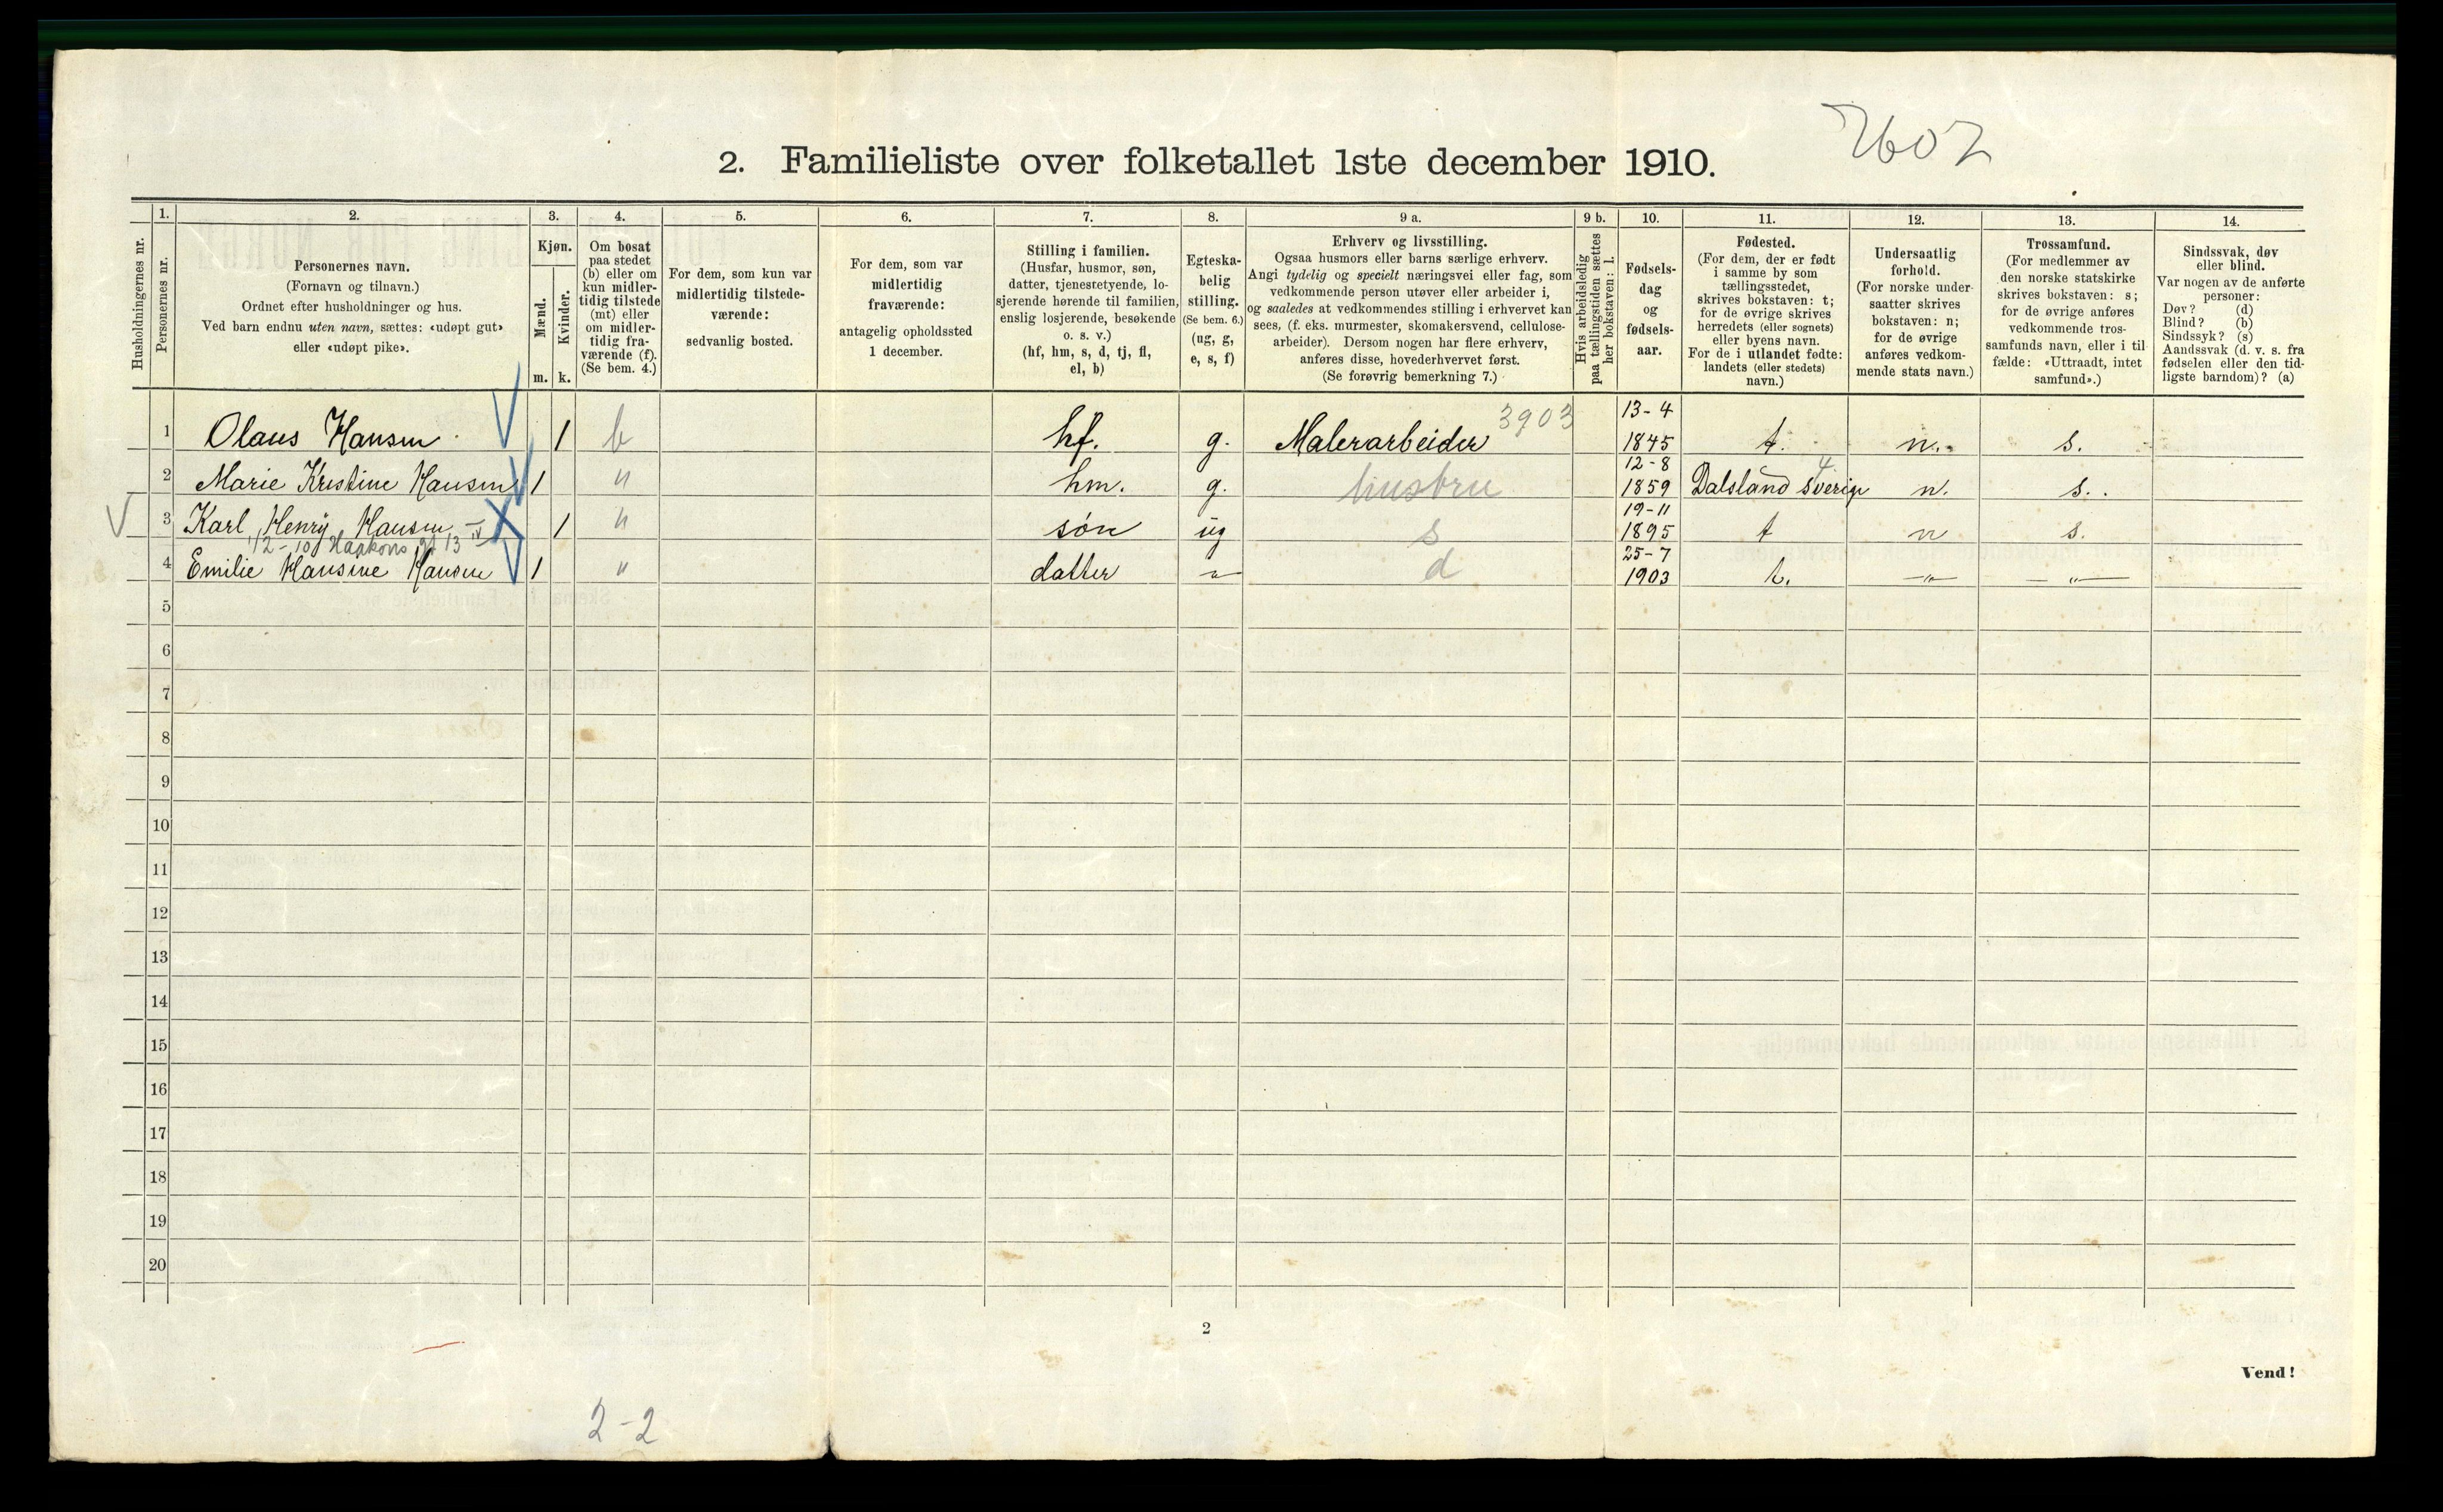 2602
2. Familieliste over folketallet 1ste december 1910.
Husholdningernes nr.
1. Personernes nr.
2. Personernes navn.
(Fornavn og tilnavn.)
Ordnet efter husholdninger og hus.
Ved barn endnu uten navn, sættes: «udøpt gut»
eller «udøpt pike».
3. Kjøn.
Mænd. m.
Kvinder. k.
4. Om bosat
paa stedet
(b) eller om
kun midler-
tidig tilstede
(mt) eller
om midler-
tidig fra-
værende (f).
(Se bem. 4.)
5. For dem, som kun var
midlertidig tilstede-
værende:
sedvanlig bosted.
6. For dem, som var
midlertidig
fraværende:
antagelig opholdssted
1 december.
7. Stilling i familien.
(Husfar, husmor, søn,
datter, tjenestetyende, lo-
sjerende hørende til familien,
enslig losjerende, besøkende
o. s. v.)
(hf, hm, s, d, tj, fl,
el, b)
8. Egteska-
belig
stilling.
(Se bem. 6.)
(ug, g,
e, s, f)
9 a. Erhverv og livsstilling.
Ogsaa husmors eller barns særlige erhverv.
Angi tydelig og specielt næringsvei eller fag, som
vedkommende person utøver eller arbeider i,
og saaledes at vedkommendes stilling i erhvervet kan
sees, (f. eks. murmester, skomakersvend, cellulose-
arbeider). Dersom nogen har flere erhverv,
anføres disse, hovederhvervet først.
(Se forøvrig bemerkning 7.)
9 b. Hvis arbeidsledig
paa tællingstiden sættes
her bokstaven: l.
10. Fødsels-
dag
og
fødsels-
aar.
11. Fødested.
(For dem, der er født
i samme by som
tællingsstedet,
skrives bokstaven: t;
for de øvrige skrives
herredets (eller sognets)
eller byens navn.
For de i utlandet fødte:
landets (eller stedets)
navn.)
12. Undersaatlig
forhold.
(For norske under-
saatter skrives
bokstaven: n;
for de øvrige
anføres vedkom-
mende stats navn.)
13. Trossamfund.
(For medlemmer av
den norske statskirke
skrives bokstaven: s;
for de øvrige anføres
vedkommende tros-
samfunds navn, eller i til-
fælde: «Uttraadt, intet
samfund».)
14. Sindssvak, døv
eller blind.
Var nogen av de anførte
personer:
Døv? (d)
Blind? (b)
Sindssyk? (s)
Aandssvak (d. v. s. fra
fødselen eller den tid-
ligste barndom)? (a)
1 Olaus Hansen 1 b hf. g. Malerarbeider 3903 13-4 1845 t. n. s.
2 Marie Kristine Hansen 1 " hm. g. husbru 12-8 1859 Dalsland Sverige n. s.
3 Karl Henry Hansen 1 " søn ug s 19-11 1895 t n s.
1/2-10 Haakons gt 13 IV
4 Emilie Hansine Hansen 1 " datter " d 25-7 1903 t. " "
5
6
7
8
9
10
11
12
13
14
15
16
17
18
19
20
2
Vend!
2-2